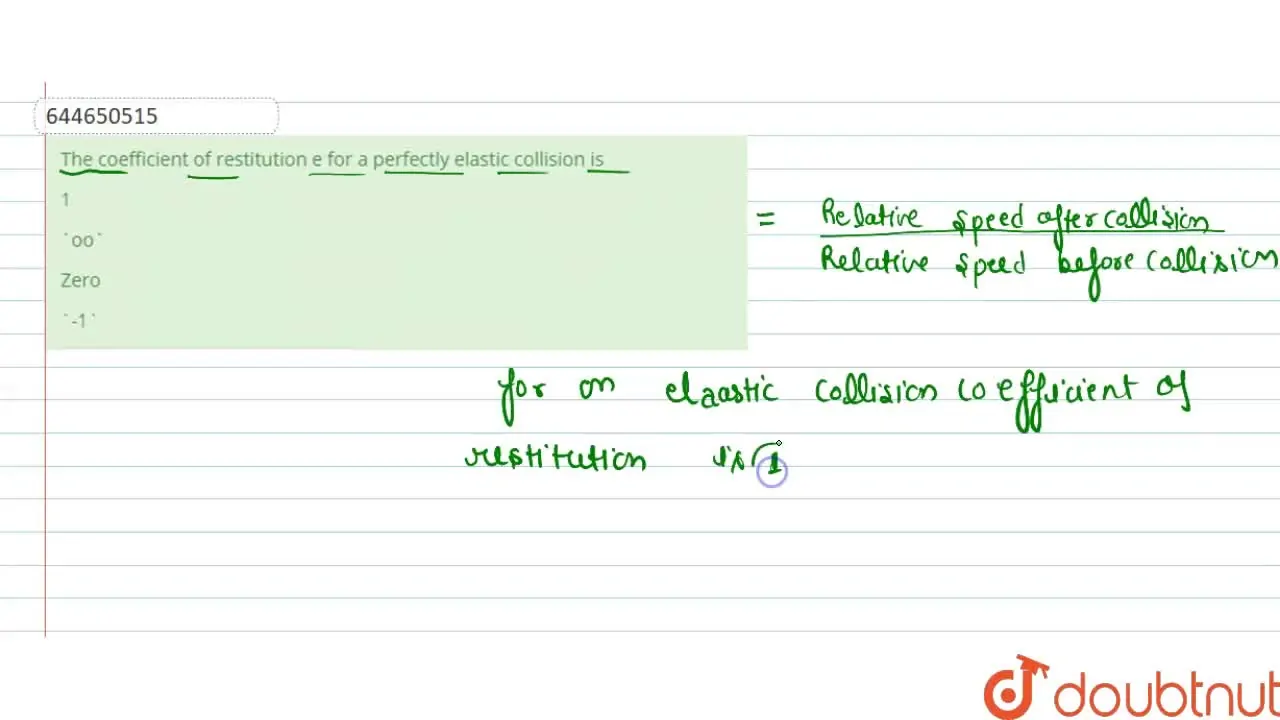 644650515
The coefficient of restitution e for a perfectly elastic collision is
1
`oo`
Zero
`-1`
= Relative speed after collision
Relative speed before collision
for on elaastic collision coefficient of
restitution is 1
doubtnut